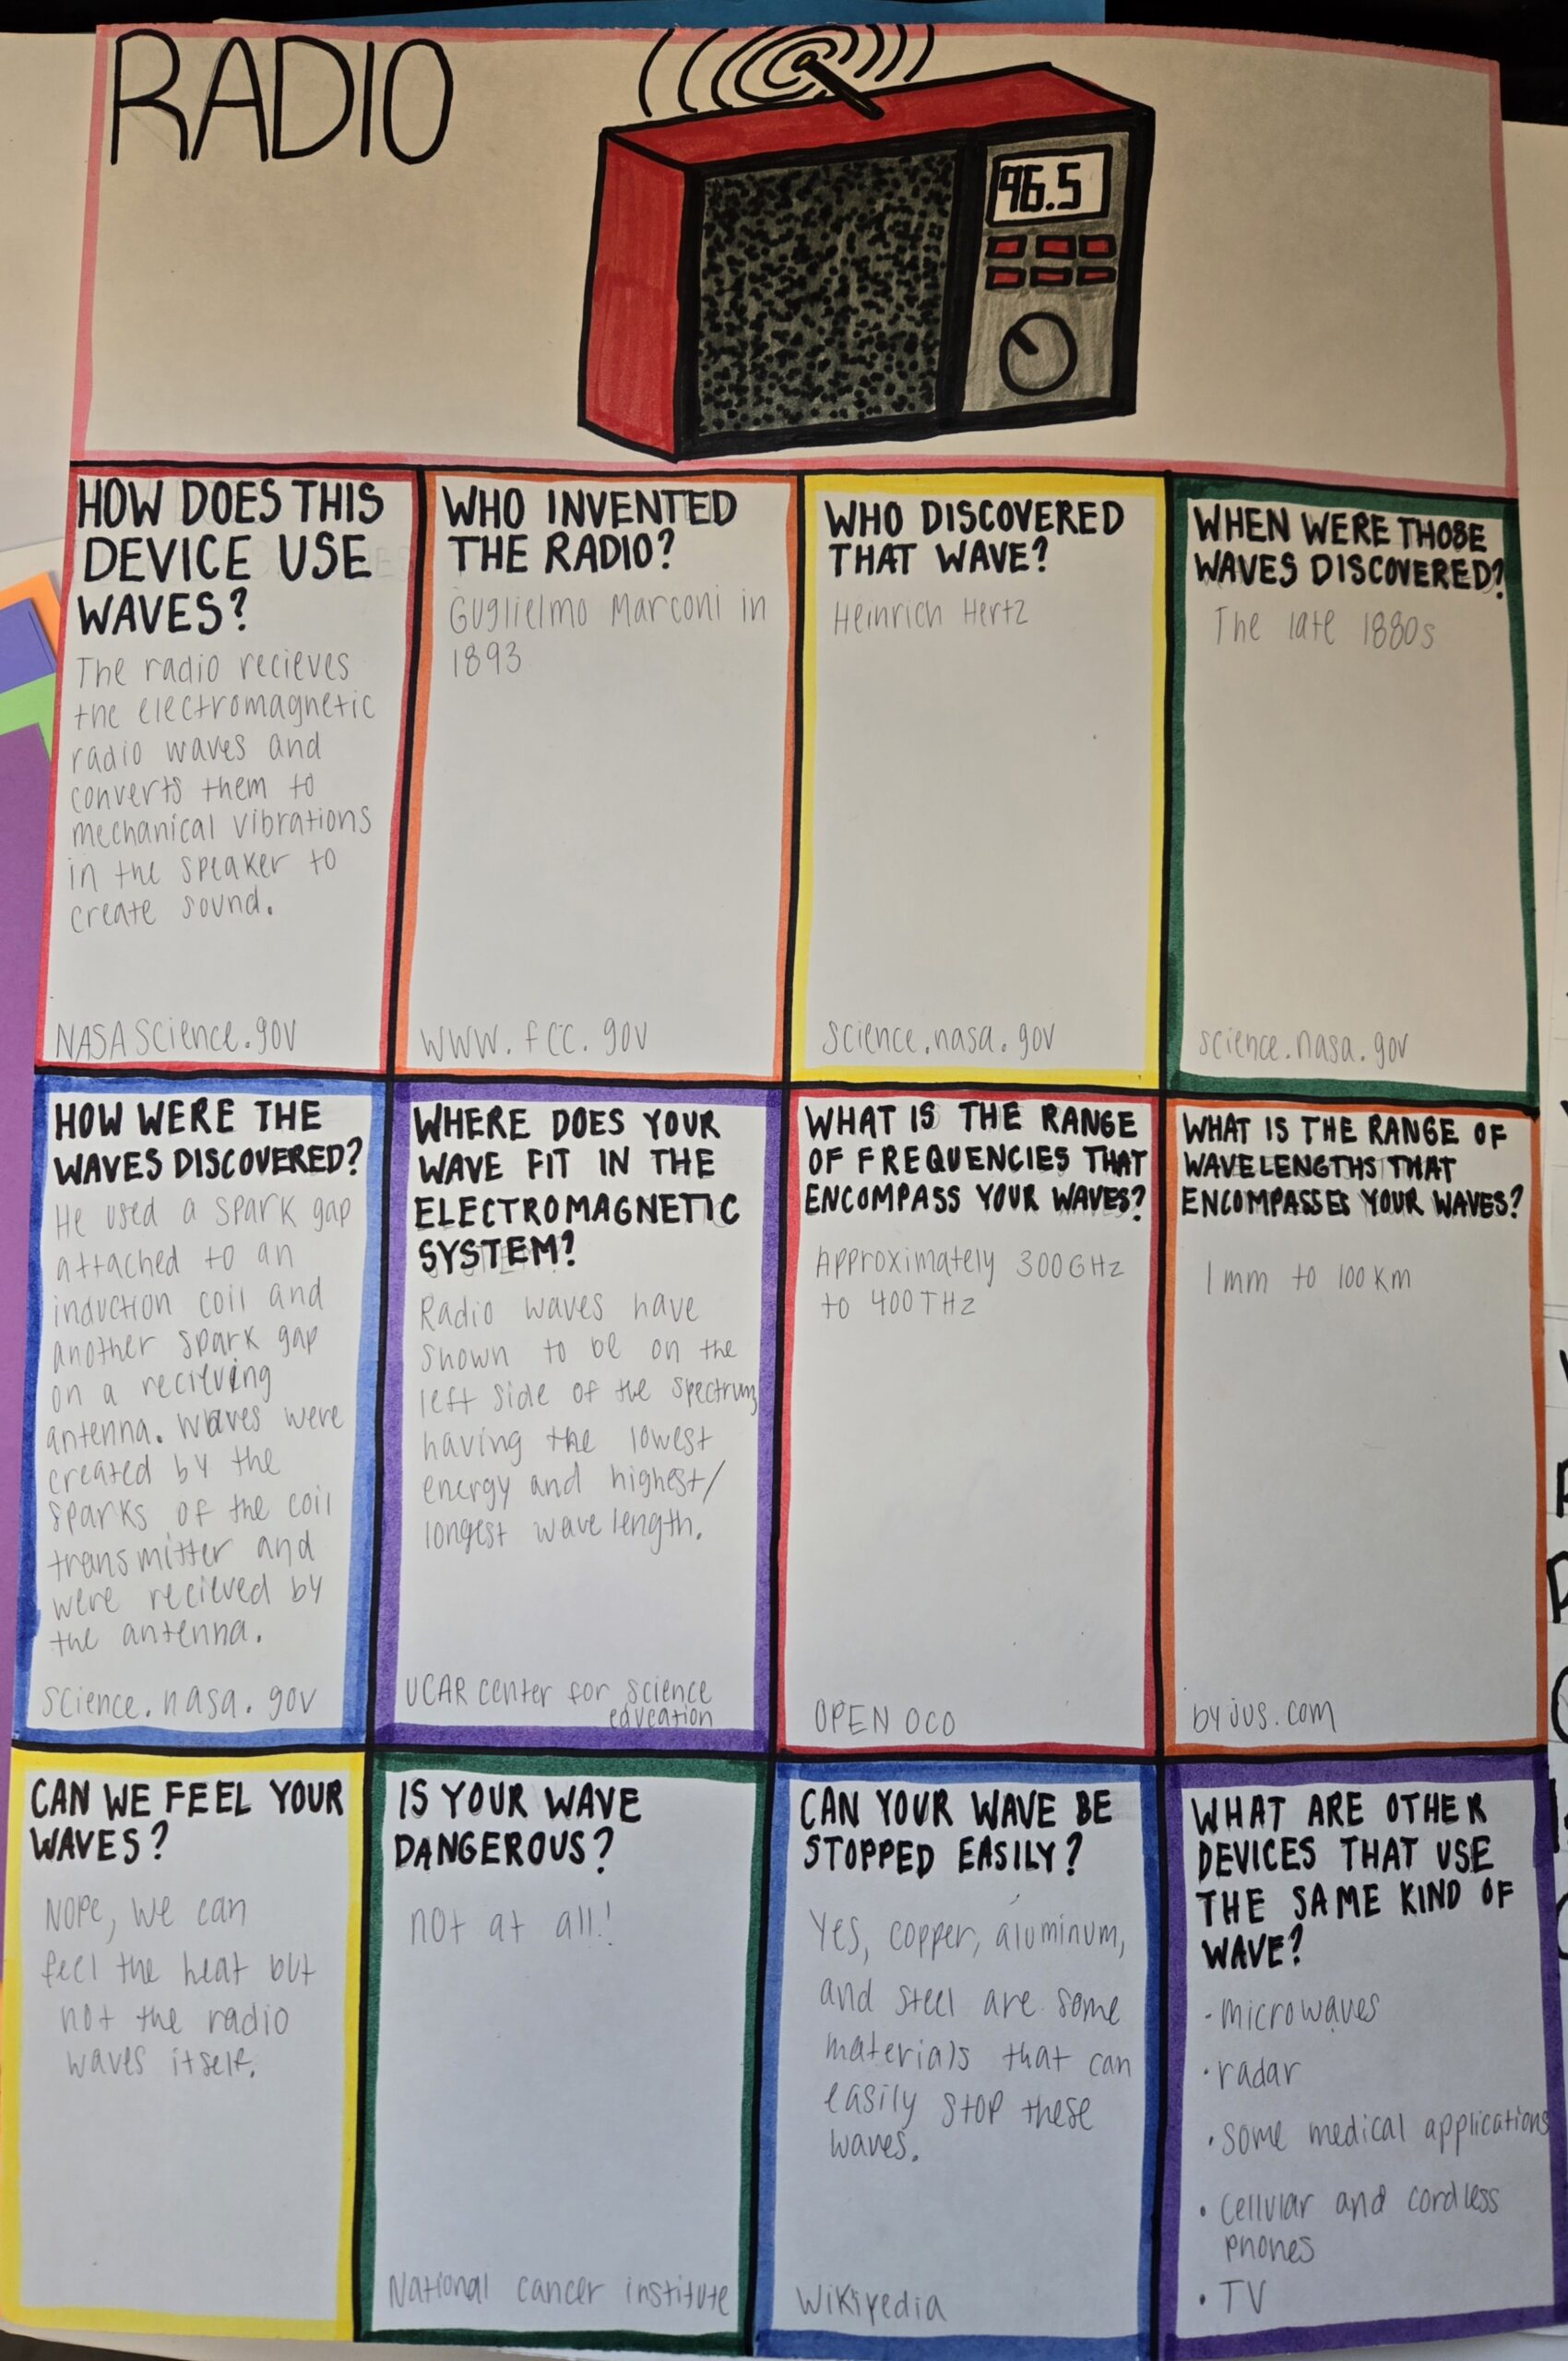 RADIO
96.5
HOW DOES THIS
DEVICE USE
WAVES?
The radio recieves
the electromagnetic
radio waves and
converts them to
mechanical vibrations
in the speaker to
create sound.
NASA Science.gov
WHO INVENTED
THE RADIO?
Guglielmo Marconi in
1893
www.fcc.gov
WHO DISCOVERED
THAT WAVE?
Heinrich Hertz
science.nasa.gov
WHEN WERE THOSE
WAVES DISCOVERED?
The late 1880s
science.nasa.gov
HOW WERE THE
WAVES DISCOVERED?
He used a spark gap
attached to an
induction coil and
another spark gap
on a recieving
antenna. Waves were
created by the
sparks of the coil
transmitter and
were recieved by
the antenna.
science.nasa.gov
WHERE DOES YOUR
WAVE FIT IN THE
ELECTROMAGNETIC
SYSTEM?
Radio waves have
shown to be on the
left side of the spectrum,
having the lowest
energy and highest/
longest wavelength.
UCAR center for science
education
WHAT IS THE RANGE
OF FREQUENCIES THAT
ENCOMPASS YOUR WAVES?
Approximately 300GHz
to 400THz
OPEN OCO
WHAT IS THE RANGE OF
WAVELENGTHS THAT
ENCOMPASSES YOUR WAVES?
1mm to 100km
byjus.com
CAN WE FEEL YOUR
WAVES?
Nope, we can
feel the heat but
not the radio
waves itself.
IS YOUR WAVE
DANGEROUS?
not at all!
National cancer institute
CAN YOUR WAVE BE
STOPPED EASILY?
Yes, copper, aluminum,
and steel are some
materials that can
easily stop these
waves.
Wikipedia
WHAT ARE OTHER
DEVICES THAT USE
THE SAME KIND OF
WAVE?
- microwaves
· radar
· some medical applications
· cellular and cordless
phones
· TV